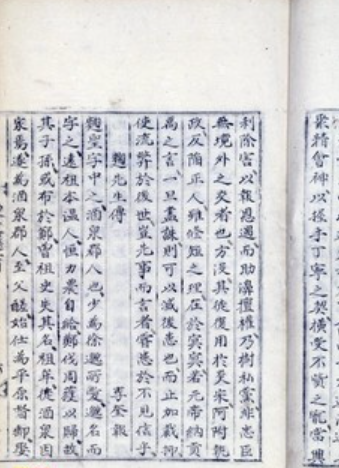 聚精會神以握手丁寧之契橫受不貲之寵當興
利除害以報恩遇而助濞擅權乃樹私黨非忠臣
無境外之交者也方沒其徒復用於炎宋阿附執
政反陷正人雖脩短之理在於冥冥若元帝納貢
禹之言一旦盡誅則可以滅後患也而止加裁抑
使流弊於後世豈先事而言者嘗患於不見信乎
麴先生傳 李奎報
麴聖字中之酒泉郡人也少為徐邈所愛邈名而
字之遠祖本溫人恒力農自給鄭伐周獲以歸故
其子孫或布於鄭曾祖史失其名祖牟徙酒泉因
家焉遂為酒泉郡人至父醝始仕為平原督郵娶